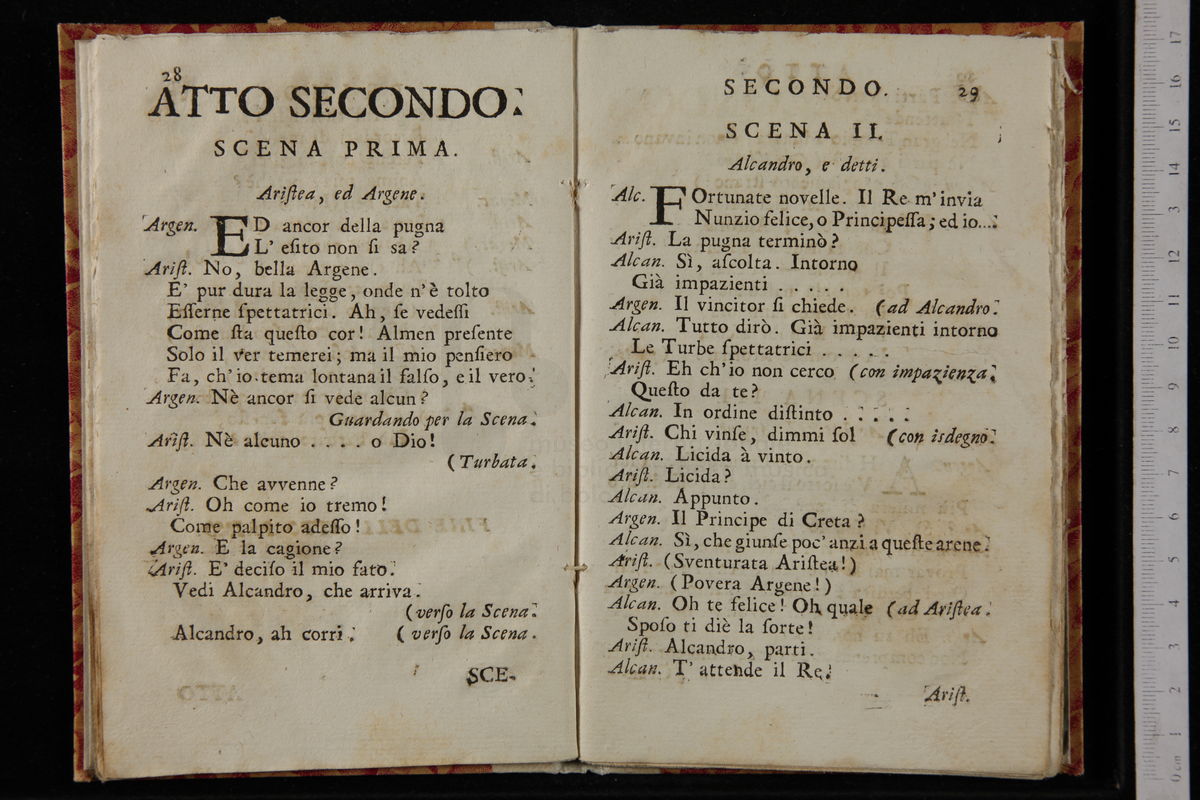 28
ATTO SECONDO.
SCENA PRIMA.
Ariſtea, ed Argene.
Argen. ED ancor della pugna
L' eſito non ſi sa?
Ariſt. No, bella Argene.
E' pur dura la legge, onde n'è tolto
Eſſerne ſpettatrici. Ah, ſe vedeſſi
Come ſta queſto cor! Almen preſente
Solo il ver temerei; ma il mio penſiero
Fa, ch'io tema lontana il falſo, e il vero.
Argen. Nè ancor ſi vede alcun?
Guardando per la Scena.
Ariſt. Nè alcuno . . . . o Dio!
(Turbata.
Argen. Che avvenne?
Ariſt. Oh come io tremo!
Come palpito adeſſo!
Argen. E la cagione?
Ariſt. E' deciſo il mio fato.
Vedi Alcandro, che arriva.
(verſo la Scena.
Alcandro, ah corri. (verſo la Scena.
SCE-
SECONDO. 29
SCENA II.
Alcandro, e detti.
Alc. FOrtunate novelle. Il Re m'invia
Nunzio felice, o Principeſſa; ed io....
Ariſt. La pugna terminò?
Alcan. Sì, aſcolta. Intorno
Già impazienti . . . . .
Argen. Il vincitor ſi chiede. (ad Alcandro.
Alcan. Tutto dirò. Già impazienti intorno
Le Turbe ſpettatrici . . . . .
Ariſt. Eh ch'io non cerco (con impazienza.
Queſto da te?
Alcan. In ordine diſtinto . . . . .
Ariſt. Chi vinſe, dimmi ſol (con isdegno.
Alcan. Licida à vinto.
Ariſt. Licida?
Alcan. Appunto.
Argen. Il Principe di Creta?
Alcan. Sì, che giunſe poc' anzi a queſte arene.
Ariſt. (Sventurata Ariſtea!)
Argen. (Povera Argene!)
Alcan. Oh te felice! Oh quale (ad Ariſtea.
Spoſo ti diè la ſorte!
Ariſt. Alcandro, parti.
Alcan. T' attende il Re.
Ariſt.